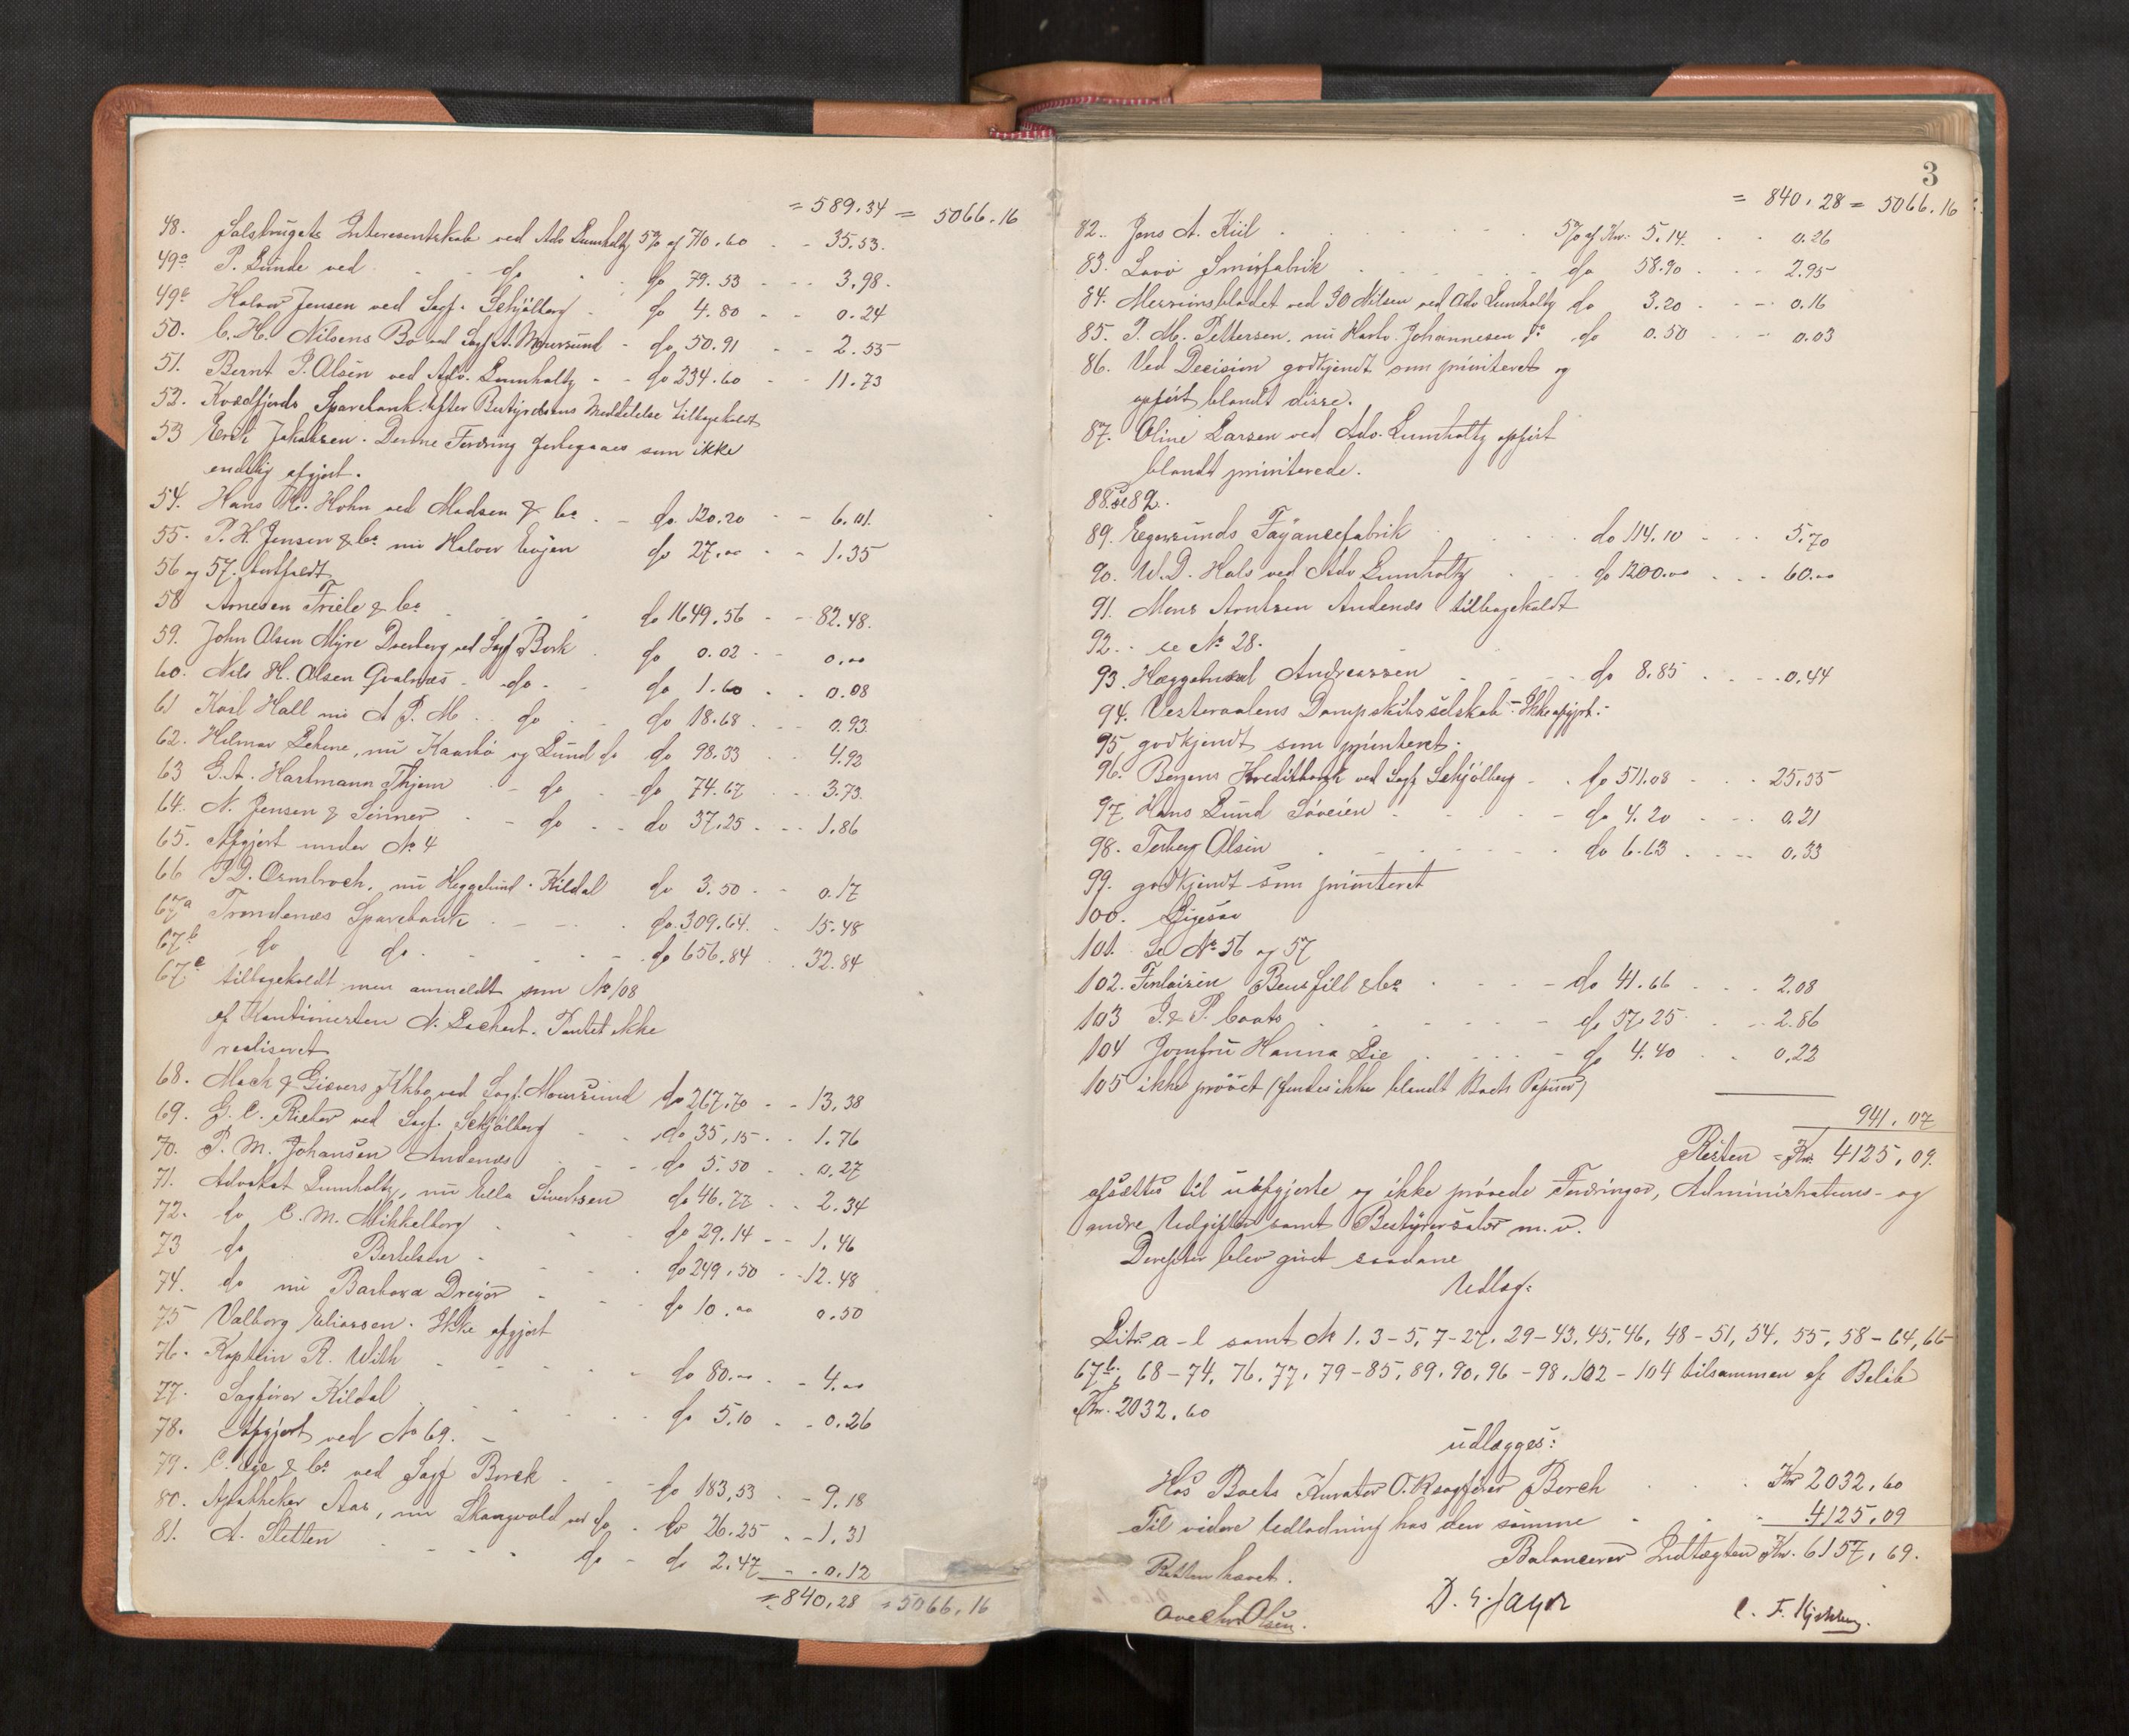 = 589.34 = 5066.16
48. Salsbrugets Interesentskab ved Adv Lumholtz 5% af 710.60 - - 35.53.
49a P. Lunde ved - - do - do 79.53 - - - 3.98.
49b Halvor Jensen ved Sagf. Schjölberg - do 4.80 - - 0.24
50. C. H. Nilsens Bo ved Sagf. A. Moursund - do 50.91 - - 2.55
51. Bernt J. Olsen ved Adv. Lumholtz - - do 234.60 - - 11.73
52. Kvedfjords Sparebank. Efter Bestyrelsens Meddelelse tilbagekaldt
53 Erik Jakobsen. Denne Fordring forbigaaes som ikke
endelig afgjort.
54. Hans H. Hohn ved Madsen & Co. - do 120.20 - - 6.01.
55. P. H. Jensen & Co nu Halvor Evjen do 27.00 - - 1.35
56 og 57. bortfaldt
58 Arnesen Friele & Co - - - do 1649.56 - - 82.48.
59. John Olsen Myre Dverberg ved Sagf Bork . do 0.02 - - 0.00
60. Nils H. Olsen Qvalnæs - do - do 1.60 - - 0.08
61 Karl Hall nu A P. M. . do - - do 18.68 - - 0.93.
62. Helmar Lehne, nu Kaarbö og Lund do do 98.33 - - 4.92
63 G. A. Hartmann Thjem - - do - do 74.67 - - - 3.73.
64. N. Jensen & Sönner - - do - - do 37.25 - - - 1.86
65. Afgjort under No 4
66 P D. Ormbroch, nu Heggelund - Kildal do 3.50 - - 0.17
67a Trondenæs Sparebank - - - . do 309.64. - 15.48
67b do do. - - - - do 656.84 . . 32.84
67c tilbagekaldt men anmeldt som No 108
af Kautionisten N. Lockert. Pantet ikke
realiseret
68. Mack & Gievers Iktbo ved Sagf. Moursund do 267.70 - - 13.38
69. G. C. Rieber ved Sagf. Schjölberg - - do 35,15 - - 1.76
70. P. M. Johansen Andenæs - - - do 5.50 - - 0.27
71. Advokat Lumholtz, nu Ella Sivertsen do 46.77 - - 2.34
72. do E. M. Mikkelborg - - - do 29.14 - - 1.46
73 do Bertelsen - - - - do 249.50 - - 12.48
74. do nu Barbara Dreyer - - - do 10.00 0.50
75 Valborg Eliassen. Ikke afgjort
76. Kaptein R. With - - - - do 80.00 - - 4.00
77. Sagfører Kildal - - - - - do 5.10 - - 0.26
78. Afgjort ved No 69.
79. C. Lye & Co ved Sagf Borck - - - do 183,53 - - 9.18
80. Apotheker Aas, nu Skangvold ved do - do 26.25 - - 1.31
81. A. Sletten - - - - do - do 2.47 - - 0.12
= 840.28 = 5066.16
3
= 840.28 = 5066.16
82. Jens A. Kiil - - - - 5% af Kr. 5.14. - - 0.26
83. Lavö Smörfabrik - - - - do 58.90 - - - 2.95
84. Messönsbladet ved J O Nilsen ved Adv Lumholtz do 3.20 - - - 0.16
85. P. M. Pettersen, nu Harb. Johannesen do do 0.50 - - - 0.03
86. Ved Decision godkjendt som prioriteret og
opført blandt disse.
87. Oline Larsen ved Adv. Lumholtz opført
blandt prioriterede.
88. se 82.
89. Egersunds Fayancefabrik - - - do 114.10 - - - 5.70
90. W. D. Hals ved Adv Lumholtz - - do 1200.00 - - - 60.00
91. Mons Arntsen Andenæs tilbagekaldt
92. . se No 28.
93. Hæggelund Andreassen - - - do 8.85 - - - 0.44
94. Vesteraalens Dampskibsselskab - Ikke afgjort. -
95. godkjendt som prioriteret.
96. Bergens Kreditbank ved Sagf Schjölberg - - do 511.08 - - - 25.55
97 Hans Lund Söveien - - - - do 4.20 - - - 0.21
98. Torberg Olsen - - - - do 6.63 - - - 0.33
99. godkjendt som prioriteret
100. Ligesaa
101. Se No 56 og 57
102. Finlaisen Bousfill & Co - - - do 41.66 - - - 2.08
103 J. & P. Coats - - - - do 57.25 - - - 2.86
104 Jomfru Hanna Lie - - - - do 4.40 - - 0.22
105 ikke prövet (findes ikke blandt Boets Papirer)
941.07
Resten = Kr. 4125,09.
afsættes til uafgjorte og ikke prövede Fordringer, Administrations- og
andre Udgifter samt Bestyrersalær m. v.
Derefter blev givet saadane
Udlæg:
Litr. a-l samt No 1. 3-5, 7-27. 29-43. 45. 46, 48-51, 54. 55. 58-64, 66-
67b. 68-74. 76. 77. 79-85. 89. 90. 96-98. 102-104 tilsammen af Beløb
Kr. 2032.60
udlægges:
Hos Boets Kurator O.R.sagfører Borch - - - Kr 2032,60
Til videre Udlodning hos den samme - - - 4125,09
Balancerer Indtægten Kr. 6157,69.
Retten hævet.
Ove Chr Olsen. D. G. Jager C. F. Kjelsberg.